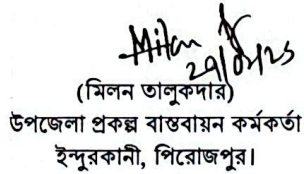 Milan
29/07/25
(মিলন তালুকদার)
উপজেলা প্রকল্প বাস্তবায়ন কর্মকর্তা
ইন্দুরকানী, পিরোজপুর।